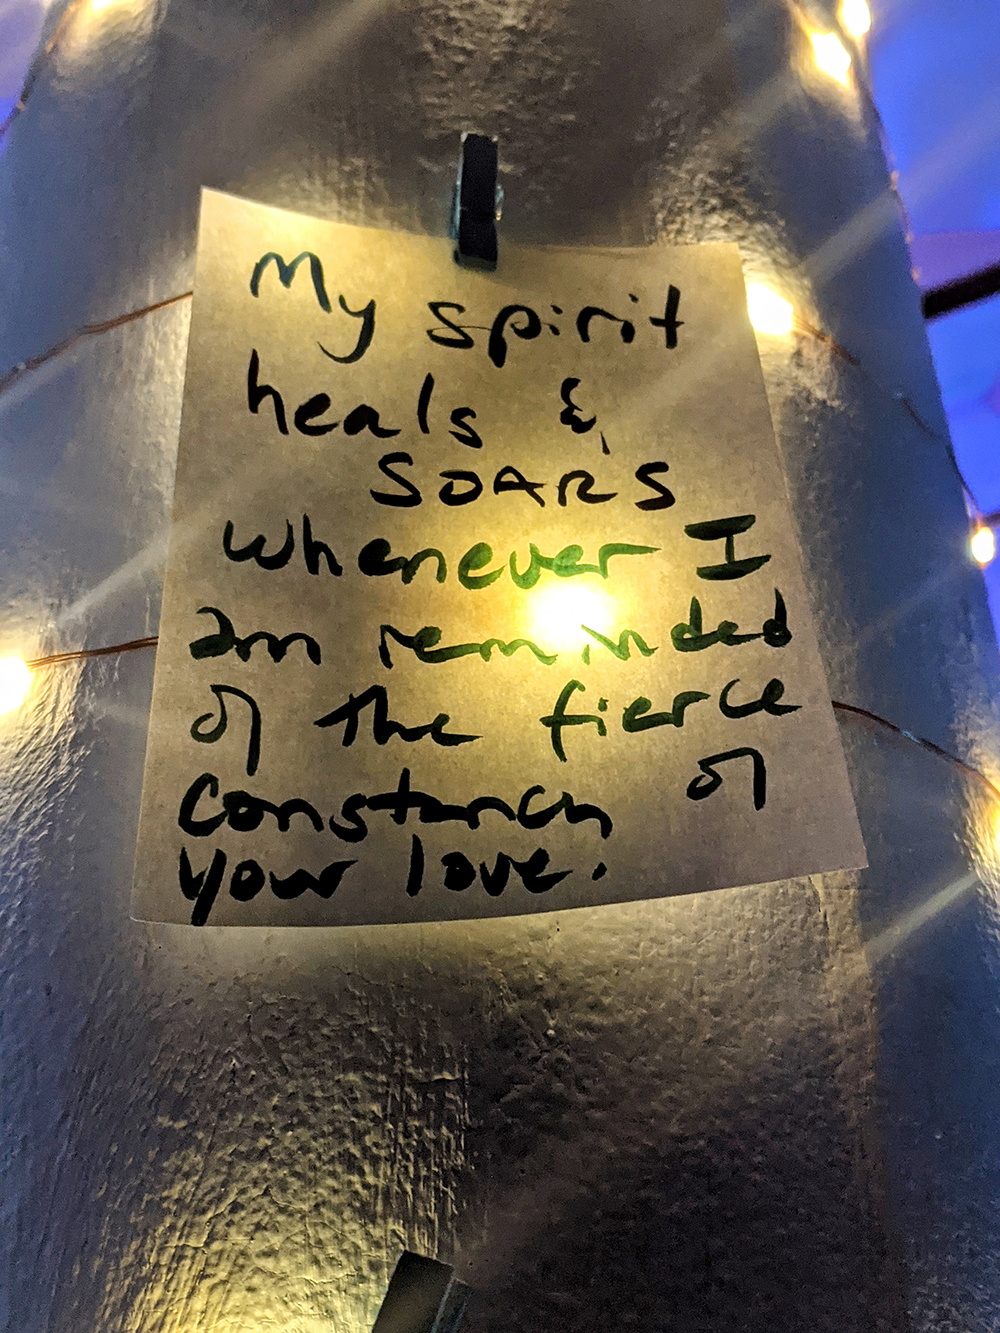 My spirit
heals &
SOARS
whenever I
am reminded
of the fierce
constancy of
your love.